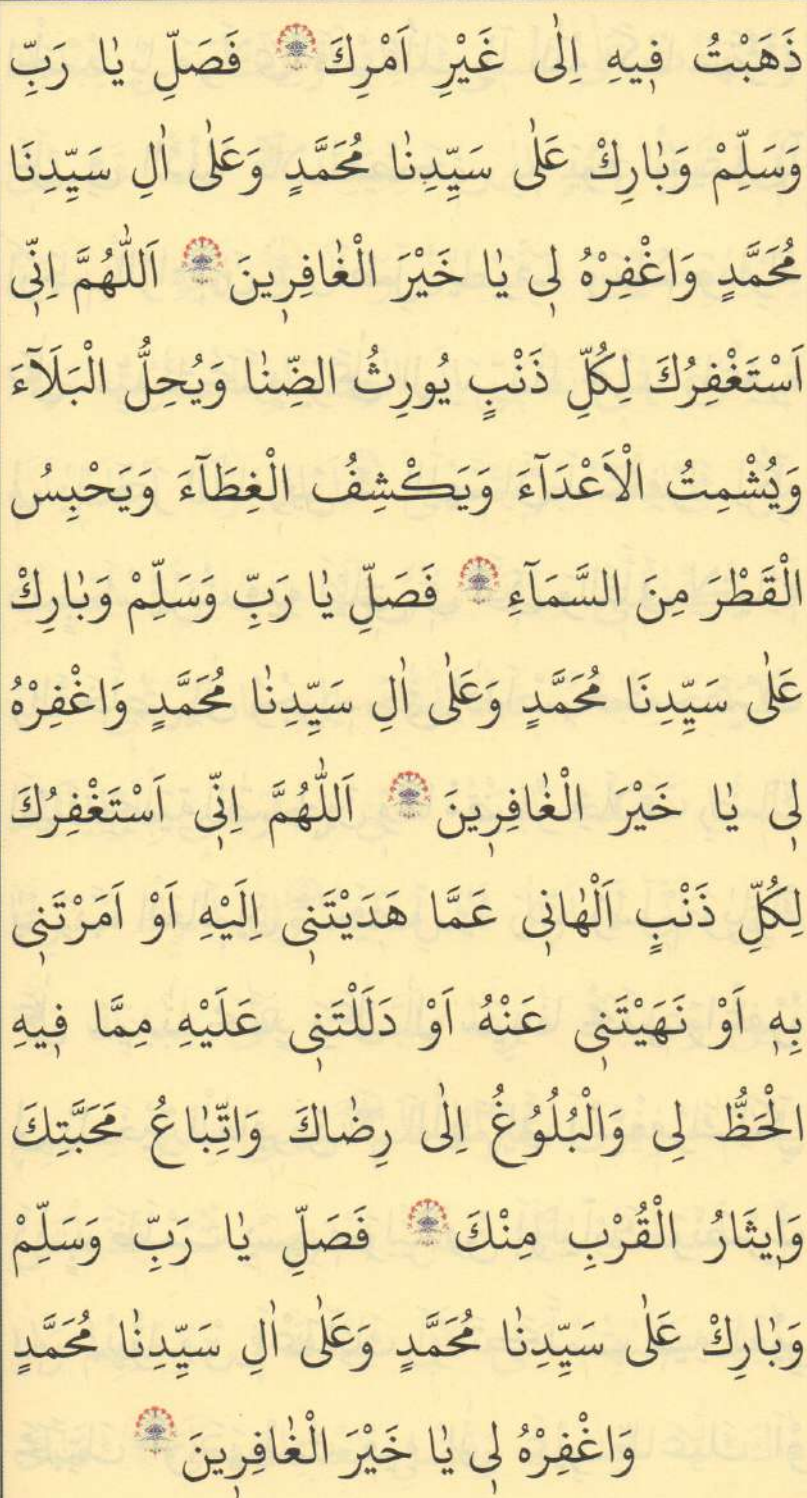 ذَهَبْتُ فٖيهِ اِلٰى غَيْرِ اَمْرِكَ ۞ فَصَلِّ يٰا رَبِّ
وَسَلِّمْ وَبٰارِكْ عَلٰى سَيِّدِنٰا مُحَمَّدٍ وَعَلٰى اٰلِ سَيِّدِنَا
مُحَمَّدٍ وَاغْفِرْهُ لٖى يٰا خَيْرَ الْغٰافِرٖينَ ۞ اَللّٰهُمَّ اِنّٖى
اَسْتَغْفِرُكَ لِكُلِّ ذَنْبٍ يُورِثُ الضِّنٰا وَيُحِلُّ الْبَلَآءَ
وَيُشْمِتُ الْاَعْدَآءَ وَيَكْشِفُ الْغِطَآءَ وَيَحْبِسُ
الْقَطْرَ مِنَ السَّمَآءِ ۞ فَصَلِّ يٰا رَبِّ وَسَلِّمْ وَبٰارِكْ
عَلٰى سَيِّدِنَا مُحَمَّدٍ وَعَلٰى اٰلِ سَيِّدِنٰا مُحَمَّدٍ وَاغْفِرْهُ
لٖى يٰا خَيْرَ الْغٰافِرٖينَ ۞ اَللّٰهُمَّ اِنّٖى اَسْتَغْفِرُكَ
لِكُلِّ ذَنْبٍ اَلْهٰانٖى عَمَّا هَدَيْتَنٖى اِلَيْهِ اَوْ اَمَرْتَنٖى
بِهٖ اَوْ نَهَيْتَنٖى عَنْهُ اَوْ دَلَلْتَنٖى عَلَيْهِ مِمَّا فٖيهِ
الْحَظُّ لِى وَالْبُلُوُغُ اِلٰى رِضٰاكَ وَاتِّبٰاعُ مَحَبَّتِكَ
وَاٖيثَارُ الْقُرْبِ مِنْكَ ۞ فَصَلِّ يٰا رَبِّ وَسَلِّمْ
وَبٰارِكْ عَلٰى سَيِّدِنٰا مُحَمَّدٍ وَعَلٰى اٰلِ سَيِّدِنٰا مُحَمَّدٍ
وَاغْفِرْهُ لٖى يٰا خَيْرَ الْغٰافِرٖينَ ۞